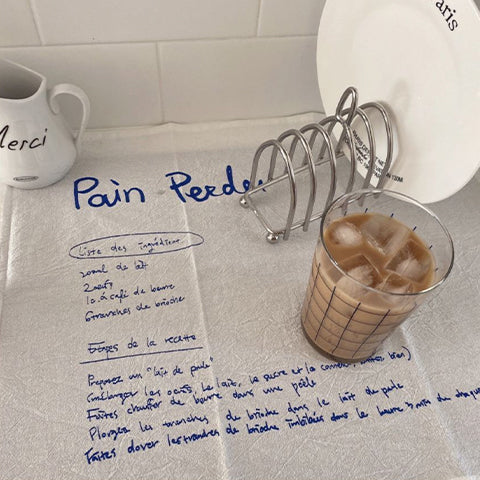 aris
Merci
Pain Perdu
Liste des ingrédients
200ml de lait
2 œufs
1 c. à café de beurre
6 tranches de brioche
Étapes de la recette
Préparez un "lait de poule"
(mélangez les œufs, le lait, le sucre et la bien)
Faites chauffer de beurre dans une poêle
Plongez les tranches de brioche dans le lait de poule
Faites dorer les tranches de brioche imbibées dans le beurre 3 min de chaque